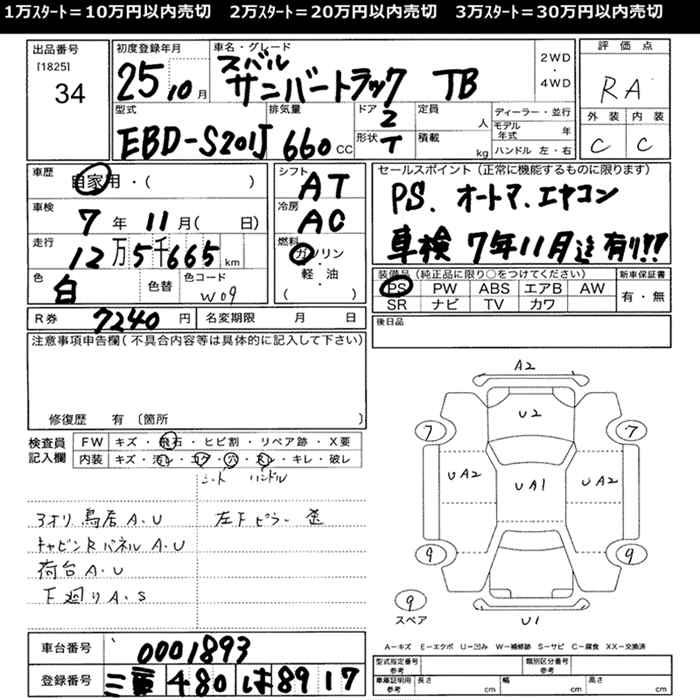 1万ｽﾀｰﾄ＝10万円以内売切　2万ｽﾀｰﾄ＝20万円以内売切　3万ｽﾀｰﾄ＝30万円以内売切
出品番号 [1825] 34
初度登録年月 25 10月
車名・グレード スバル サンバートラック TB
2WD・4WD
評価点 RA
外装 C 内装 C
型式 EBD-S201J
排気量 660 CC
ドア 2
形状 T
定員 人
積載 kg
ディーラー・並行
モデル年式 年
ハンドル 左・右
車歴 自家用・( )
車検 7年11月( 日)
走行 12万5千665km
色 白 色替 色コード W09
シフト AT
冷房 AC
燃料 ガソリン・軽・油 ( )
セールスポイント（正常に機能するものに限ります）
PS. オートマ. エヤコン
車検 7年11月迄有り!!
装備品（純正品に限り○をつけてください）
PS PW ABS エアB AW
SR ナビ TV カワ
新車保証書 有・無
R券 7240円
名変期限 月 日
後日品
注意事項申告欄（不具合内容等は具体的に記入して下さい）
修復歴 有〔箇所 〕
検査員記入欄
FW キズ・飛石・ヒビ割・リペア跡・X要
内装 キズ・汚レ・コゲ・穴・スレ・キレ・破レ
シート ハンドル
コオリ 鳥居 A.U 左下ピラー 歪
キャビンRパネル A.U
荷台 A.U
下廻り A.S
A2
U2
7
7
UA2
UA1
UA2
9
9
9
スペア
U1
A−キズ E−エクボ U−凹み W−補修跡 S−サビ C−腐食 XX−交換済
車台番号 0001893
登録番号 三重 480 は 8917
型式指定番号 参考
類別区分番号 参考
車庫証明用 参考
長さ cm
幅 cm
高さ cm